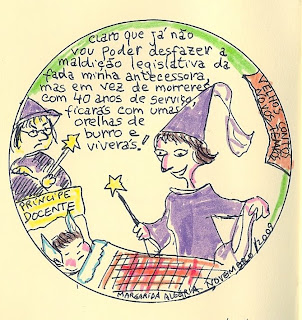 Claro que já não
vou poder desfazer a
maldição legislativa da
fada minha antecessora,
mas em vez de morreres
com 40 anos de serviço,
ficarás com umas
orelhas de
burro e
viverás!
VELHO CONTO
NOVOS TEMPOS
PRÍNCIPE
DOCENTE
MARGARIDA ALEGRIA NOVEMBRO/2009